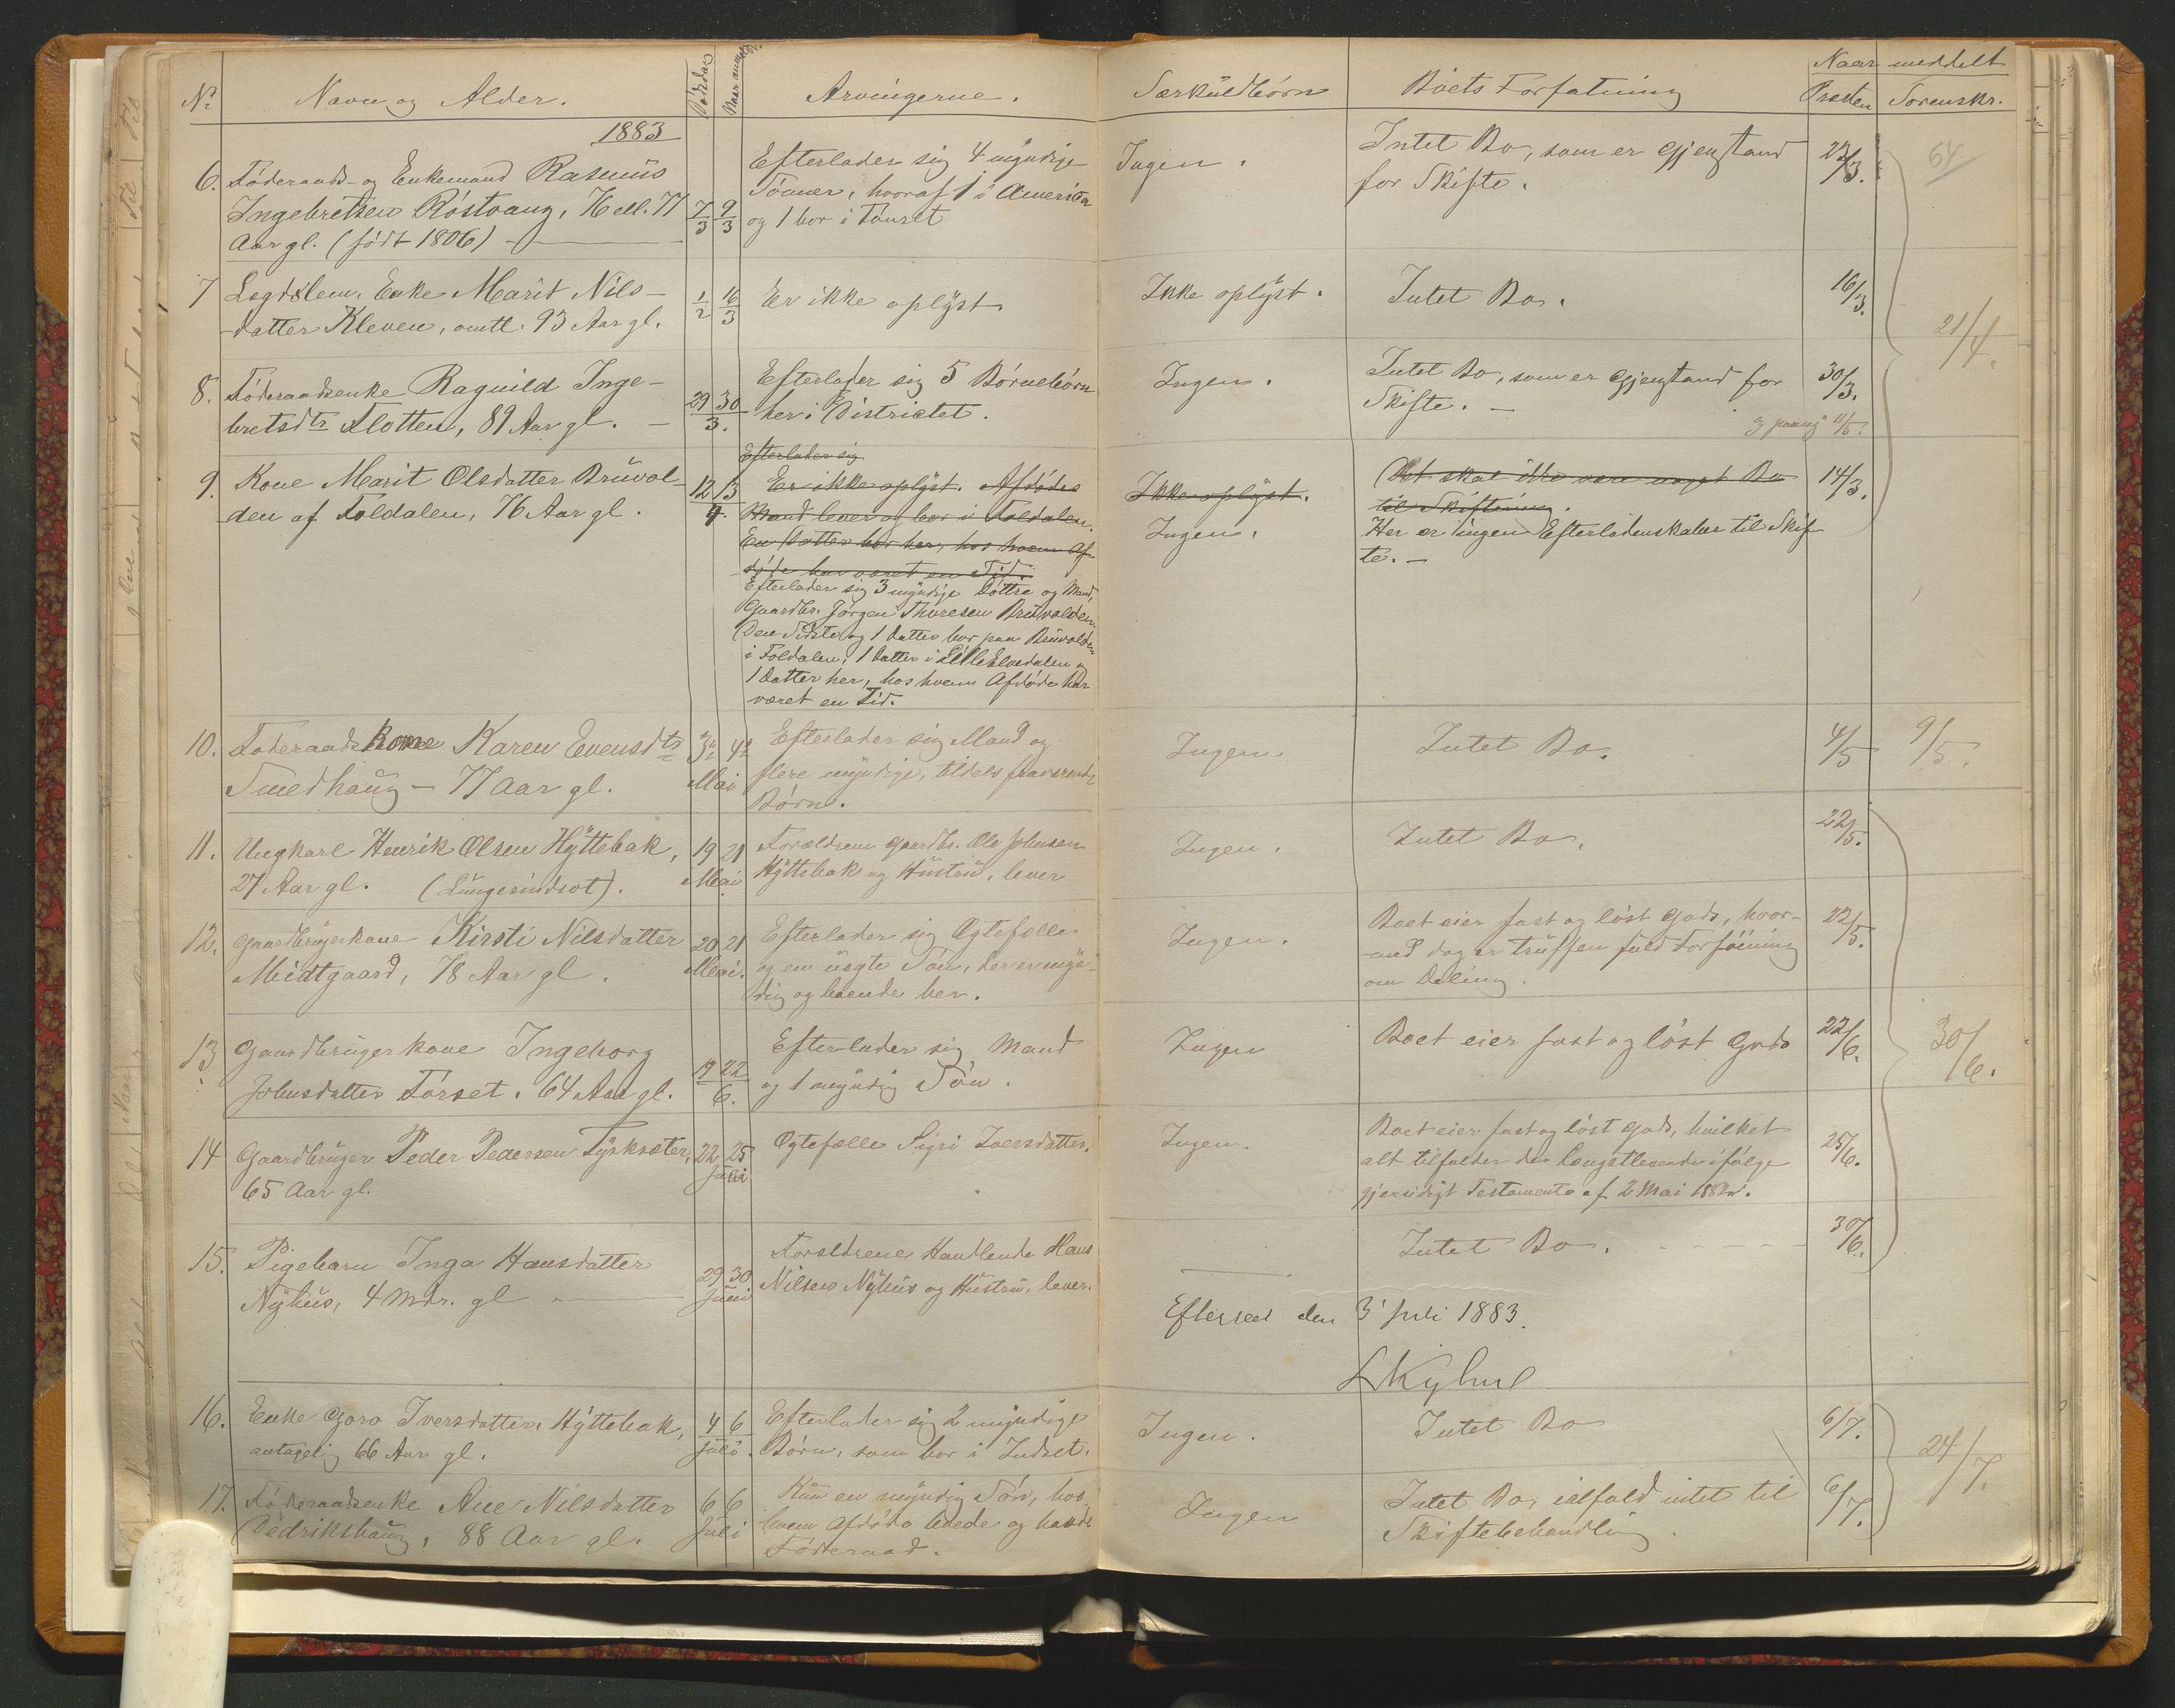 Nº Navn og Alder. Dödsdag Naar anmeldt Arvingerne. Særkuldbörn Boets Forfatning Naar meddelt
Præsten Sorenskr.
1883
6. Föderaads- og Enkemand Rasmus
Ingebretsen Röstvang, 76 ell. 77
Aar gl. (födt 1806)
7/3 9/3
Efterlader sig 4 myndige
Sönner, hvoraf 1 i America
og 1 bor i Tönset
Ingen.
Intet Bo, som er Gjenstand
for Skifte.
22/3.
64
7 Legdslem, Enke Marit Nils-
datter Kleven, omtl. 93 Aar gl.
1/2 16/3
Er ikke oplyst.
Ikke oplyst.
Intet Bo.
16/3.
21/4.
8. Föderaadsenke Ragnild Inge-
bretsdtr Flotten, 89 Aar gl. -
29 30
3.
Efterlader sig 5 Börnebörn
her i Districtet.
Ingen.
Intet Bo, som er Gjenstand for
Skifte. -
30/3.
og paany 11/5.
9. Kone Marit Olsdatter Bruvol-
den af Foldalen, 76 Aar gl.
12 13
4.
Efterlader sig
Er ikke oplyst. Afdödes
Mand lever og bor i Foldalen.
En Datter bor her, hos hvem Af-
döde har været en Tid.
Efterlader sig 3 myndige Döttre og Mand,
Gaardbr. Jörgen Thoresen Bruvolden.
Den Sidste og 1 Datter bor paa Bruvolden
i Foldalen, 1 Datter i Lille Elvedalen og
1 Datter her, hos hvem Afdöde har
været en Tid.
Ikke oplyst.
Ingen.
Det skal ikke være noget Bo
til Skiftning.
Her er ingen Efterladenskaber til Skif-
te. -
14/3.
10. Föderaadskone Karen Evensdtr
Smedhaug - 77 Aar gl.
3die 4de
Mai
Efterlader sig Mand og
flere myndige, tildels fraværende
Börn.
Ingen
Intet Bo.
4/5
9/5.
11. Ungkarl Henrik Olsen Hyttebak,
27 Aar gl. (Lungesindsot).
19 21
Mai
Forældrene Gaardbr. Ole Johnsen
Hyttebak og Hustru, lever
Ingen.
Intet Bo.
22/5.
12. Gaardbrugerkone Kirsti Nilsdatter
Midtgaard, 78 Aar gl.
20 21
Mai.
Efterlader sig Ægtefælle
og en uægte Sön, der er myn-
dig og boende her.
Ingen.
Boet eier fast og löst Gods, hvor-
med dog er truffen fuld Forföining
om Deling.
22/5.
13. Gaardbrugerkone Ingeborg
Johnsdatter Torset. 64 Aar gl.
19 22
6.
Efterlader sig Mand
og 1 myndig Sön.
Ingen
Boet eier fast og löst Gods
22/6.
30/6.
14 Gaardbruger Peder Pedersen Tysksæter,
65 Aar gl.
22 25
Juni
Ægtefælle Sigri Iversdatter.
Ingen.
Boet eier fast og löst Gods, hvilket
alt tilfalder den længstlevende ifölge
gjensidigt Testamente af 2 Mai 1882.
25/6.
15. Pigebarn Inga Hansdatter
Nyhus, 4 Mdr. gl
29 30
Juni
Forældrene Handlende Hans
Nilsen Nyhus og Hustru, lever.
Intet Bo.
30/6.
Efterseet den 3 Juli 1883.
16. Enke Goro Iversdatter Hyttebak,
antagelig 66 Aar gl.
4 6
Juli.
Efterlader sig 2 myndige
Börn, som bor i Indset.
Ingen.
Intet Bo
6/7.
24/7.
17. Föderaadsenke Ane Nilsdatter
Dedrikshaug, 88 Aar gl.
6 6
Juli
Kun en myndig Sön, hos
hvem Afdöde levede og havde
Föderaad.
Ingen
Intet Bo, ialfald intet til
Skiftebehandling.
6/7.